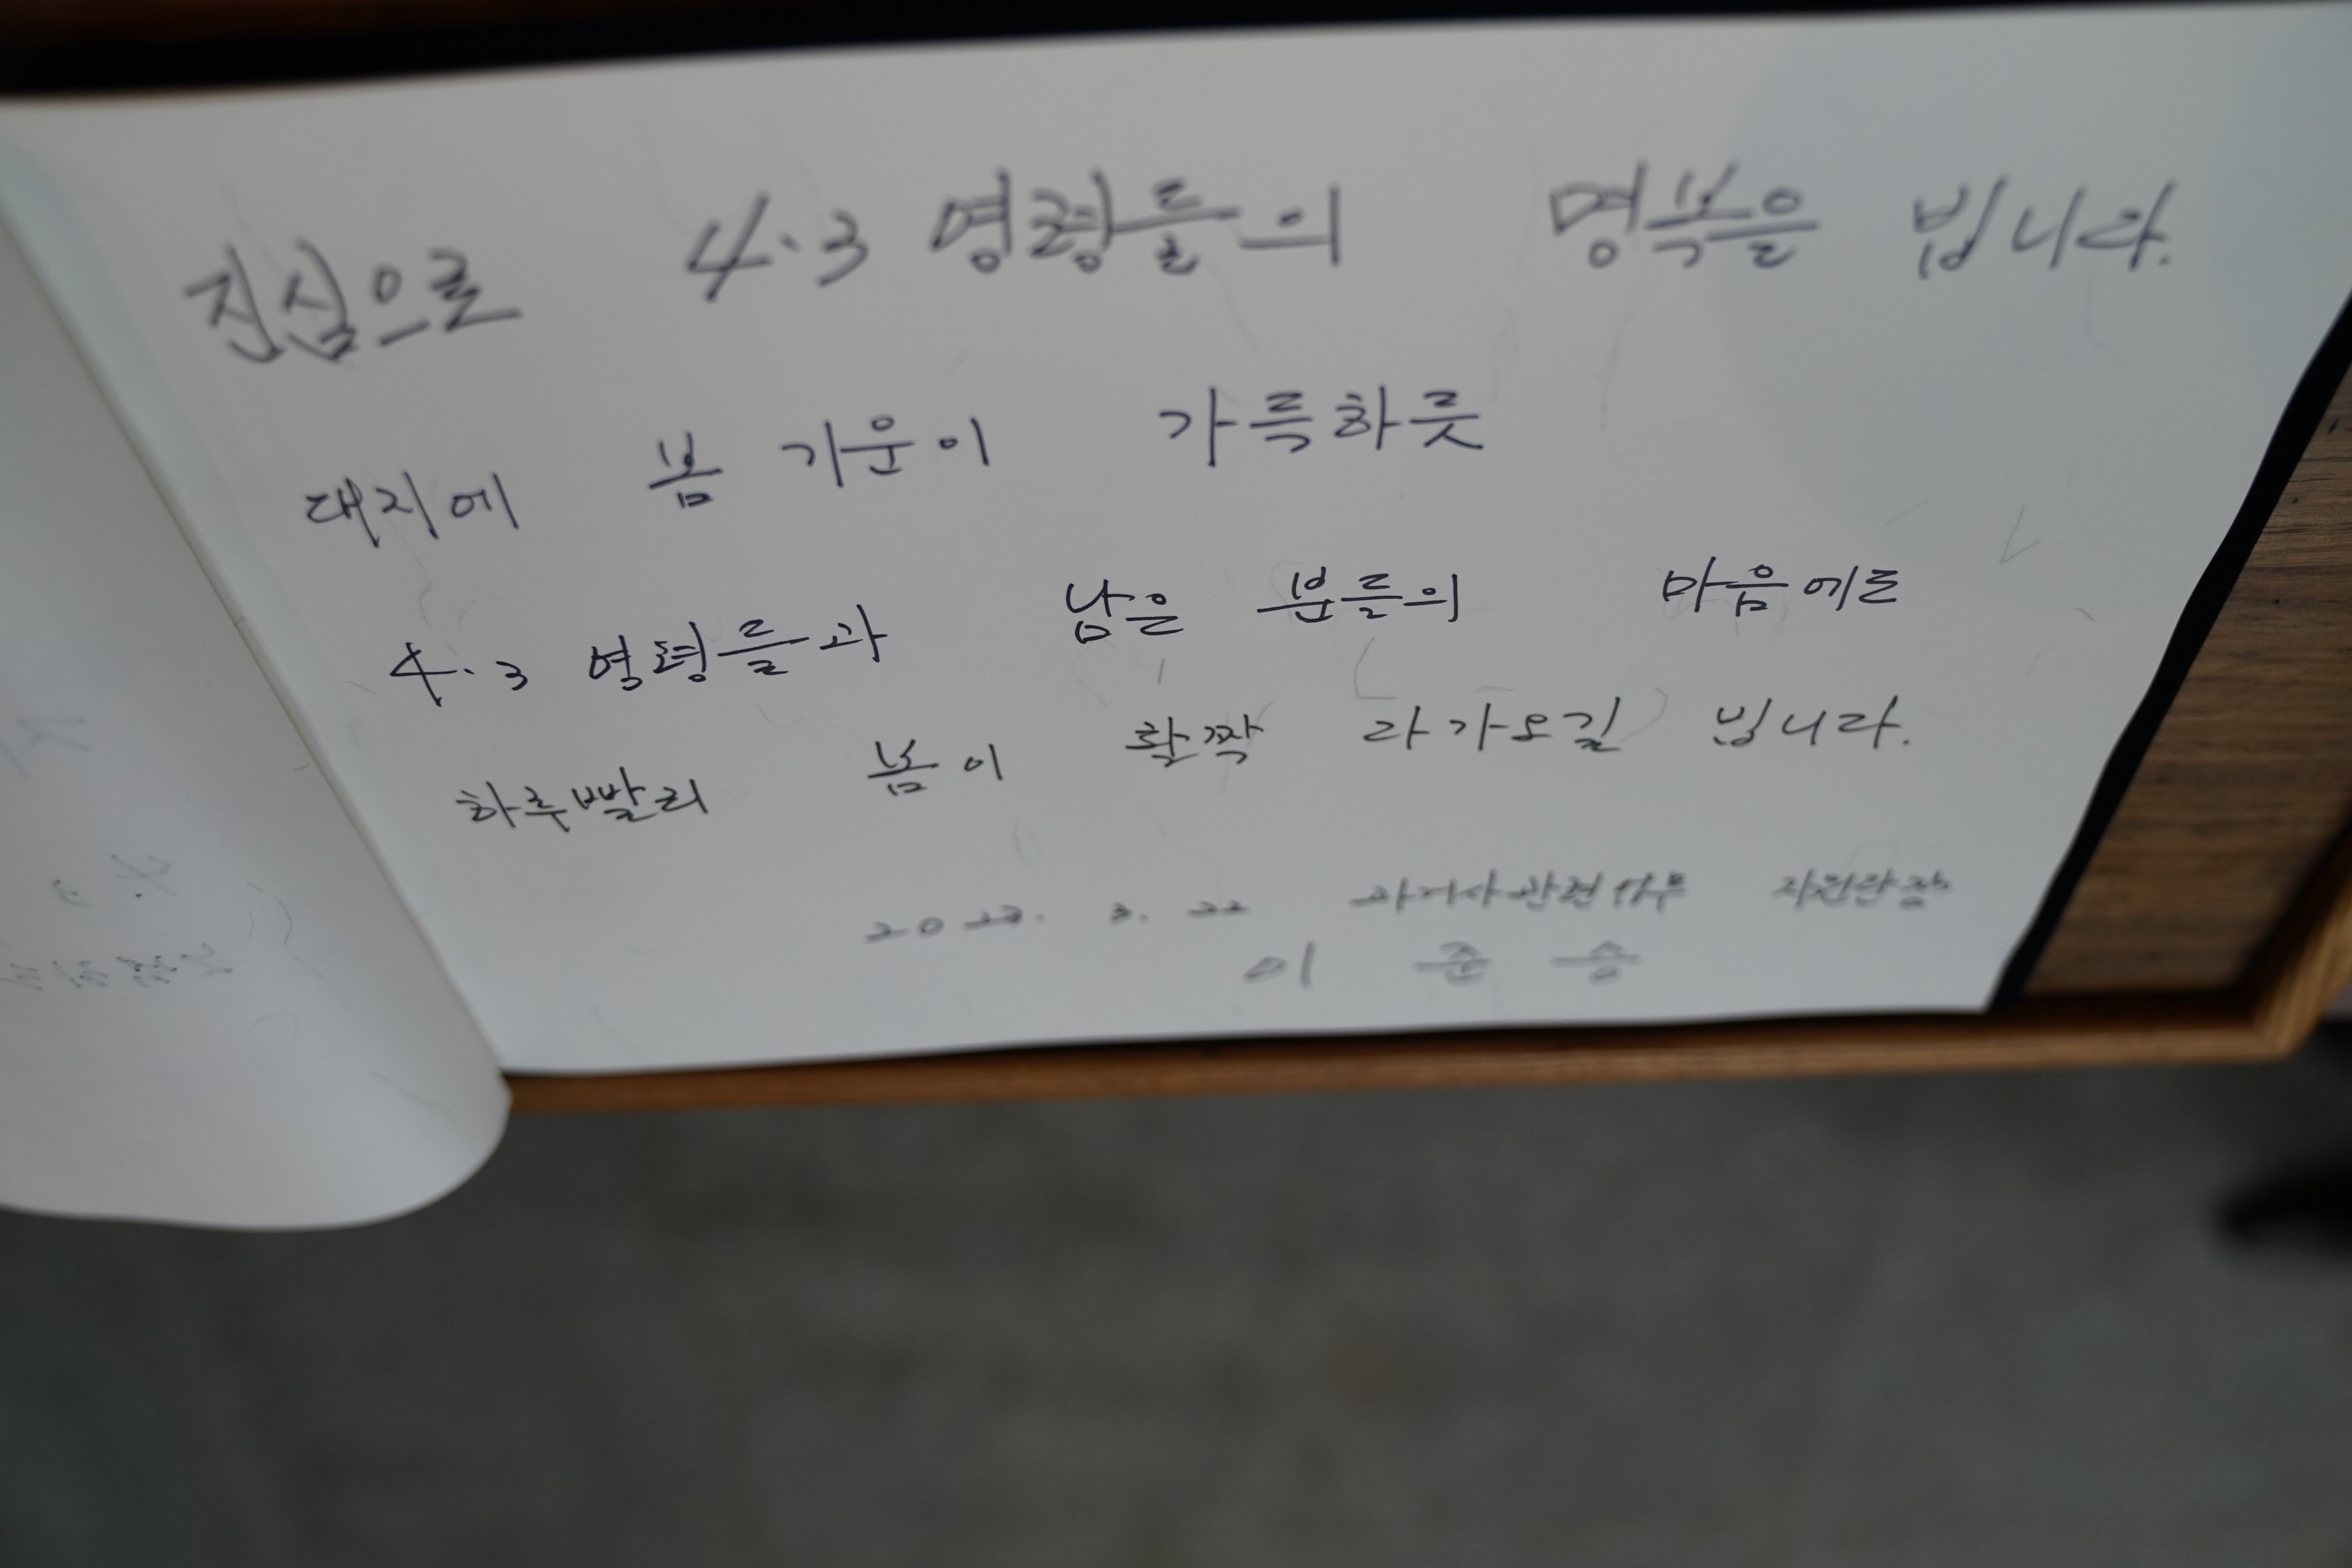 진심으로 4·3 영령들의 명복을 빕니다.
대지에 봄 기운이 가득하듯
4·3 영령들과 남은 분들의 마음에도
하루빨리 봄이 활짝 다가오길 빕니다.
3. 22 과거사관련업무 지원단장
이 준 승